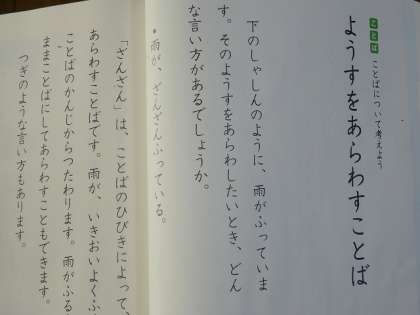 ことば ことばについて考えよう
ようすをあらわすことば
下のしゃしんのように、雨がふっていま
す。そのようすをあらわしたいとき、どん
な言い方があるでしょうか。
・雨が、ざんざんふっている。
「ざんざん」は、ことばのひびきによって、
あらわすことばです。雨が、いきおいよくふ
ことばのかんじからつたわります。雨がふる
ままことばにしてあらわすこともできます。
つぎのような言い方もあります。